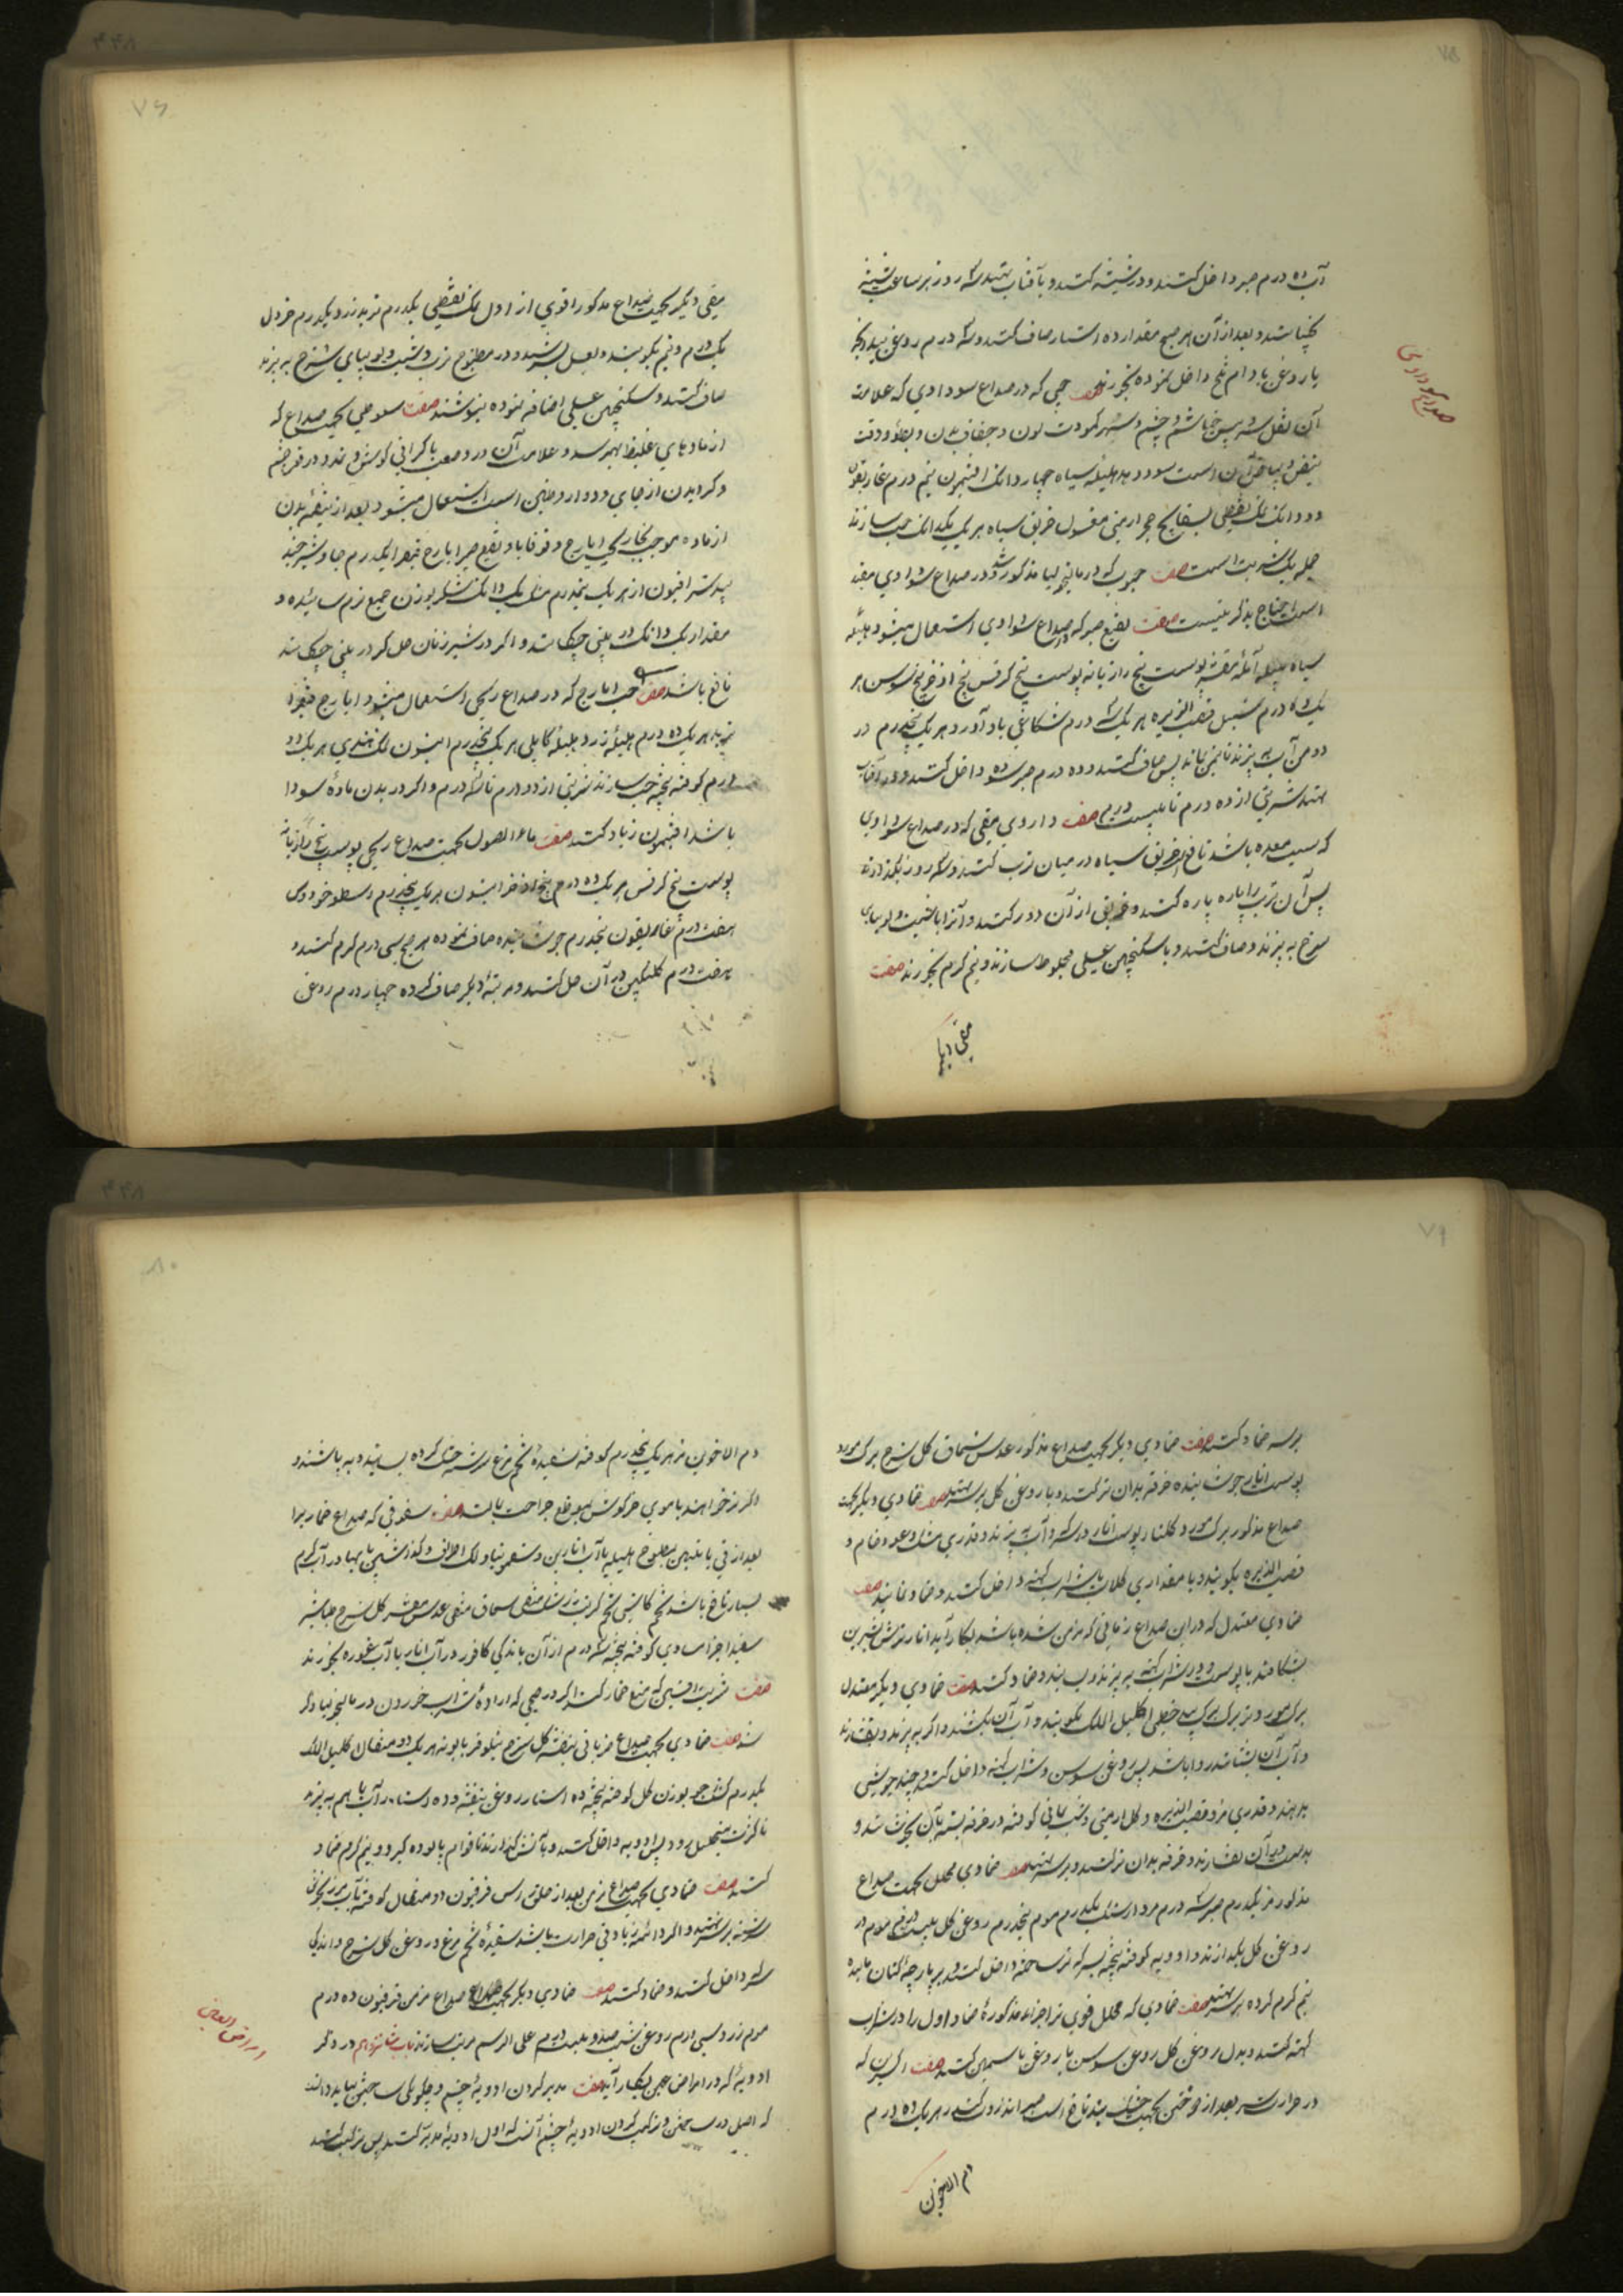 ۷۵
آب ده درم صبر داخل کنند و در شیشه کنند و بآفتاب نهند سه روز هر ساعت شیشه
بجنباند و بعد از آن هر صبح مقدار ده استار صاف کنند و سه درم روغن بیدانجیر
یا روغن بادام تلخ داخل نموده بخورند صفت حبی که در صداع سوداوی که علامت
صداع سوداوی
آن ثقل سر و یبس خیاشیم و چشم و سهر و کمودت لون و جفاف بدن و بطؤ و دقت
نبض و بیاض آن است سود دهد هلیلهٔ سیاه چهار دانک افتیمون نیم درم غاریقون
دو دانک نمک نفطی بسفایج حجر ارمنی مغسول خربق سیاه هر یک یکدانک حب سازند
جمله یک شربت است صفت حبوب که در مالیخولیا مذکور شد و در صداع سوداوی مفید
است احتیاج بذکر نیست صفت نقیع صبر که در صداع سوداوی استعمال میشود هلیلهٔ
سیاه بلیله آمله مقشر پوست بیخ رازیانه پوست بیخ کرفس بیخ اذخر بیخ سوسن هر
یک ده درم سنبل قصب الذریره هر یک سه درم شکاعی بادآورد هر یک پنجدرم در
دو من آب به پزند تا نیمن بماند پس صاف کنند و ده درم صبر سوده داخل کنند و در آفتاب
نهند شربتی از ده درم تا بیست درم صفت داروی مقی که در صداع سوداوی
که سبب معده باشد نافع خربق سیاه در میان ترب کنند و سه روز بگذارند
پس آن ترب را پاره پاره کنند و خربق از آن دور کنند و آنرا با شبت و لوبیای
سرخ به پزند و صاف کنند و با سکنجبین عسلی مخلوط سازند و نیم گرم بخورند صفت
مقی دیگر
۷۶
مقی دیگر بجهت صداع مذکور اقوی از اول نمک نفطی یکدرم تربد زرد یکدرم خردل
یک درم و نیم بکوبند و بعسل بسرشند و در مطبوخ ترب و شبت و لوبیای سرخ به پزند
صاف کنند و سکنجبین عسلی اضافه نموده بنوشند صفت سعوطی بجهت صداع که
از مادهای غلیظ بهم رسد و علامت آن درد صعب با کرانی کوش و تمدد در قعر چشم
و کردیدن از جای و دوار و طنین است استعمال میشود بعد از تنقیهٔ بدن
از ماده بموجب بخار حب ایارج و قوقایا و نقیع صبر ایارج فیقرا یکدرم جاوشیر جند
بیدستر افیون از هر یک نیمدرم مشک یک دانک شکر بوزن جمیع نرم سائیده و
مقدار یک دانک در بینی چکانند و اکر در شیر زنان حل کرده در بینی چکانند
نافع باشد صفت حب ایارج که در صداع ریحی استعمال میشود ایارج فیقرا
تربد هر یک ده درم هلیلهٔ زرد هلیلهٔ کابلی هر یک پنجدرم انیسون نمک هندی هر یک دو
درم کوفته بیخته حب سازند شربتی از دو درم تا سه درم و اکر در بدن مادهٔ سودا
باشد افتیمون زیاد کنند صفت ماء الاصول بجهت صداع ریحی پوست بیخ رازیانه
پوست بیخ کرفس هر یک ده درم بیخ اذخر انیسون هر یک پنجدرم اسطوخودوس
هفت درم غاریقون پنجدرم جوشانیده صاف نموده هر صبح سی درم گرم کنند و
هفت درم گلنگبین در آن حل کنند و مرتبهٔ دیگر صاف کرده چهار درم روغن
۷۹
بر سر ضماد کنند صفت ضمادی دیگر بجهت صداع مذکور عدس سماق کل سرخ برک مورد
پوست انار جوشانیده خرقه بدان تر کنند و با روغن کل بر سر نهند صفت ضمادی دیگر بجهت
صداع مذکور برک مورد و کلنار پوست انار در سرکه و آب به پزند و قدری مشک و عود خام و
قصب الذریره بکوبند و با مقداری کلاب یا شراب کهنه داخل کنند و ضماد نمایند صفت
ضمادی معتدل که در این صداع زمانی که مزمن شده باشد بکار آید انار ترش شیرین
بشکافند با پوست و در شراب کهنه به پزند و بسایند و ضماد کنند صفت ضمادی دیگر معتدل
برک مورد تر برک بید خطمی اکلیل الملک بکوبند و آب آن بکشند و اکر به پزند و بفشارند
و آب آن بستانند روا باشد پس روغن سوسن و شراب کهنه داخل کنند و چند جوشی
بدهند و قدری مر و قصب الذریره و کل ارمنی و شب یمانی کوفته در خرقه بسته بآن بجوشانند و
بدست در آن بفشارند و خرقه بدان تر کنند و بر سر نهند صفت ضمادی محلل بجهت صداع
مذکور مر یکدرم صبر سه درم مرداسنک یکدرم موم پنجدرم روغن کل بیست درم موم در
روغن کل بکدازند و ادویه کوفته بیخته بسرکه تر ساخته داخل کنند و بر پارچهٔ کتان مالیده
نیم گرم کرده بر سر نهند صفت ضمادی که محلل قوی تر اجزاء مذکورهٔ ضماد اول را در شراب
کهنه کنند و بدل روغن کل روغن سوسن یا روغن یاسمین کنند صفت اکسرین که
در حرارت سر بعد از وختن بجهت خشک بند نافع است صبر انزروت کندر هر یک ده درم
دم الاخوین
۸۰
دم الاخوین مر هر یک پنجدرم کوفته بسفیدهٔ تخم مرغ سرشته خشک کرده بسایند و به پاشند و
اکر تر خواهند با موی خرکوش بموضع جراحت بالند صفت سفوفی که صداع خمار را
بعد از قی یا تلیین بمطبوخ هلیله یا آب انارین و سقمونیا و دلک اطراف و کذاشتن پایها در آب گرم
بسیار نافع باشد تخم کاسنی تخم کرنب زرشک منقی سماق منقی عدس مقشر کل سرخ طباشیر
سفید اجزا مساوی کوفته بیخته سه درم از آن با اندکی کافور در آب انار یا آب غوره بخورند
صفت شربت افسنتین که منع خمار کند اکر در صبحی که ارادهٔ شراب خوردن در مالیخولیا ذکر
شد صفت ضمادی بجهت صداع ضربانی بنفشه کل سرخ نیلوفر بابونه هر یک دو مثقال اکلیل الملک
یکدرم کشک جو بوزن کل کوفته بیخته ده استار روغن بنفشه و ده استار آب با هم به پزند
تا کرنب متحلل رود پس ادویه داخل کنند و بآتش کذارند تا قوام پالوده کیرد و نیم گرم ضماد
کنند صفت ضمادی بجهت صداع مزمن بعد از حلق راس فرفیون دو مثقال کوفته بآب مرزنجوش
سرشته بر سر نهند و اکر دائمه زیادتی حرارت باشد سفیدهٔ تخم مرغ و روغن کل سرخ و اندکی
سرکه داخل کنند و ضماد کنند صفت ضمادی دیگر بجهت صداع مزمن فرفیون ده درم
موم زرد سی درم روغن شبت صد و بیست درم علی الرسم مرتب سازند باب شانزدهم در ذکر
امراض العین
ادویهٔ که در امراض عین بکار آید صفت مدبر کردن ادویهٔ چشم و چکونکی ساختن بباید دانست
که اصل در ساختن و ترکیب کردن ادویهٔ چشم آنست که اول ادویه مدبر کنند پس ترکیب کنند